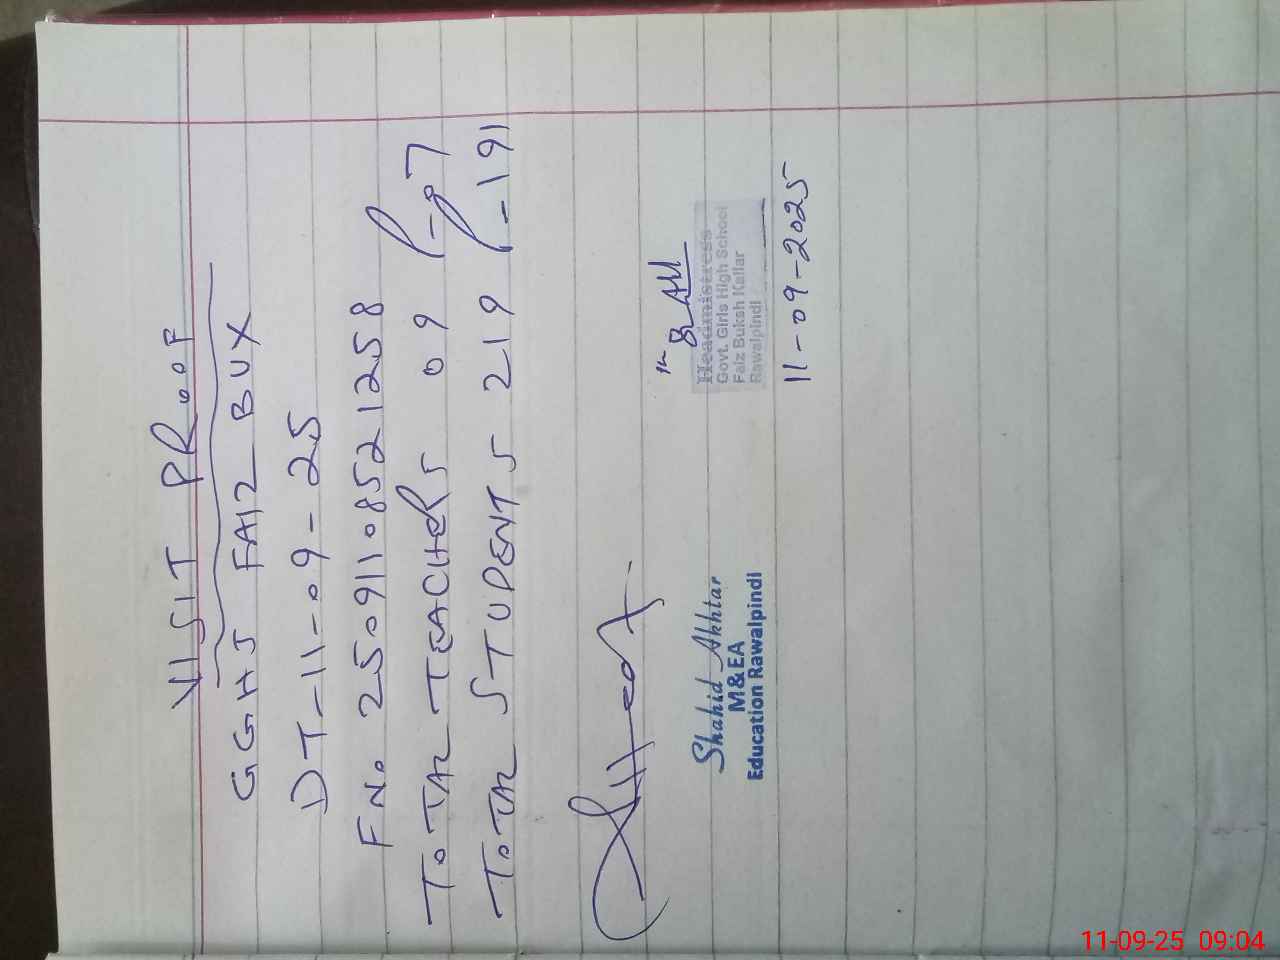 VISIT PROOF
GGHS FAIZ BUX
DT-11-09-25
FN. 25091108521258
TOTAL TEACHERS 09 P-07
TOTAL STUDENTS 219 P-191
Shahid Akhtar
M&EA
Education Rawalpindi
Headmistress
Govt. Girls High School
Faiz Buksh Kallar
Rawalpindi
11-09-2025
11-09-25 09:04